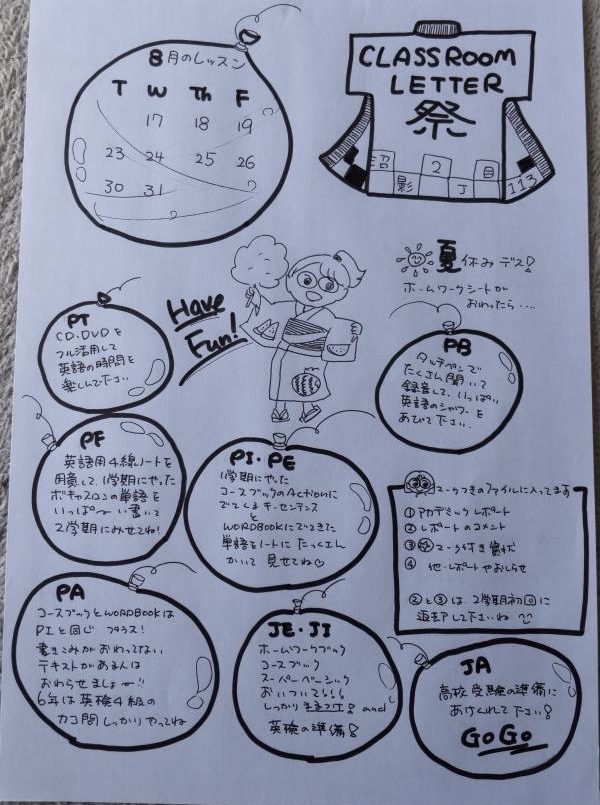 8月のレッスン
T W Th F
17 18 19
23 24 25 26
30 31
CLASSROOM
LETTER
祭
沼 2 目
影 丁 113
夏休みデス!
ホームワークシートが
おわったら・・・・
Have
Fun!
PT
CD・DVDを
フル活用して
英語の時間を
楽しんで下さい
PB
タッチペンで
たくさん聞いて
録音して、いっぱい
英語のシャワーを
あびて下さい.
PF
英語用4線ノートを
用意して、1学期にやった
ボキャブロンの単語を
いっぱ〜い書いて
2学期にみせてね!
PI・PE
1学期にやった
コースブックのActionに
でてくるキーセンテンス
と
WORDBOOKにでてきた
単語をノートにたっくさん
かいて 見せてね♡
マークつきのファイルに入ってます
① アカデミック レポート
② レポートのコメント
③ マーク付き 賞状
④ 他・レポートやおしらせ
②と③は、2学期初回に
返却して下さいね
PA
コースブックとWORDBOOKは
PIと同じ プラス!
書きこみがおわってない
テキストがあるんは
おわらせましょー!!
6年は英検4級の
カコ問しっかりやってね
JE・JI
ホームワークブック
コースブック
スーパーベーシック
おいついて
しっかり まるつけ! and
英検の準備!
JA
高校受験の準備に
あけくれて下さい!
GoGo